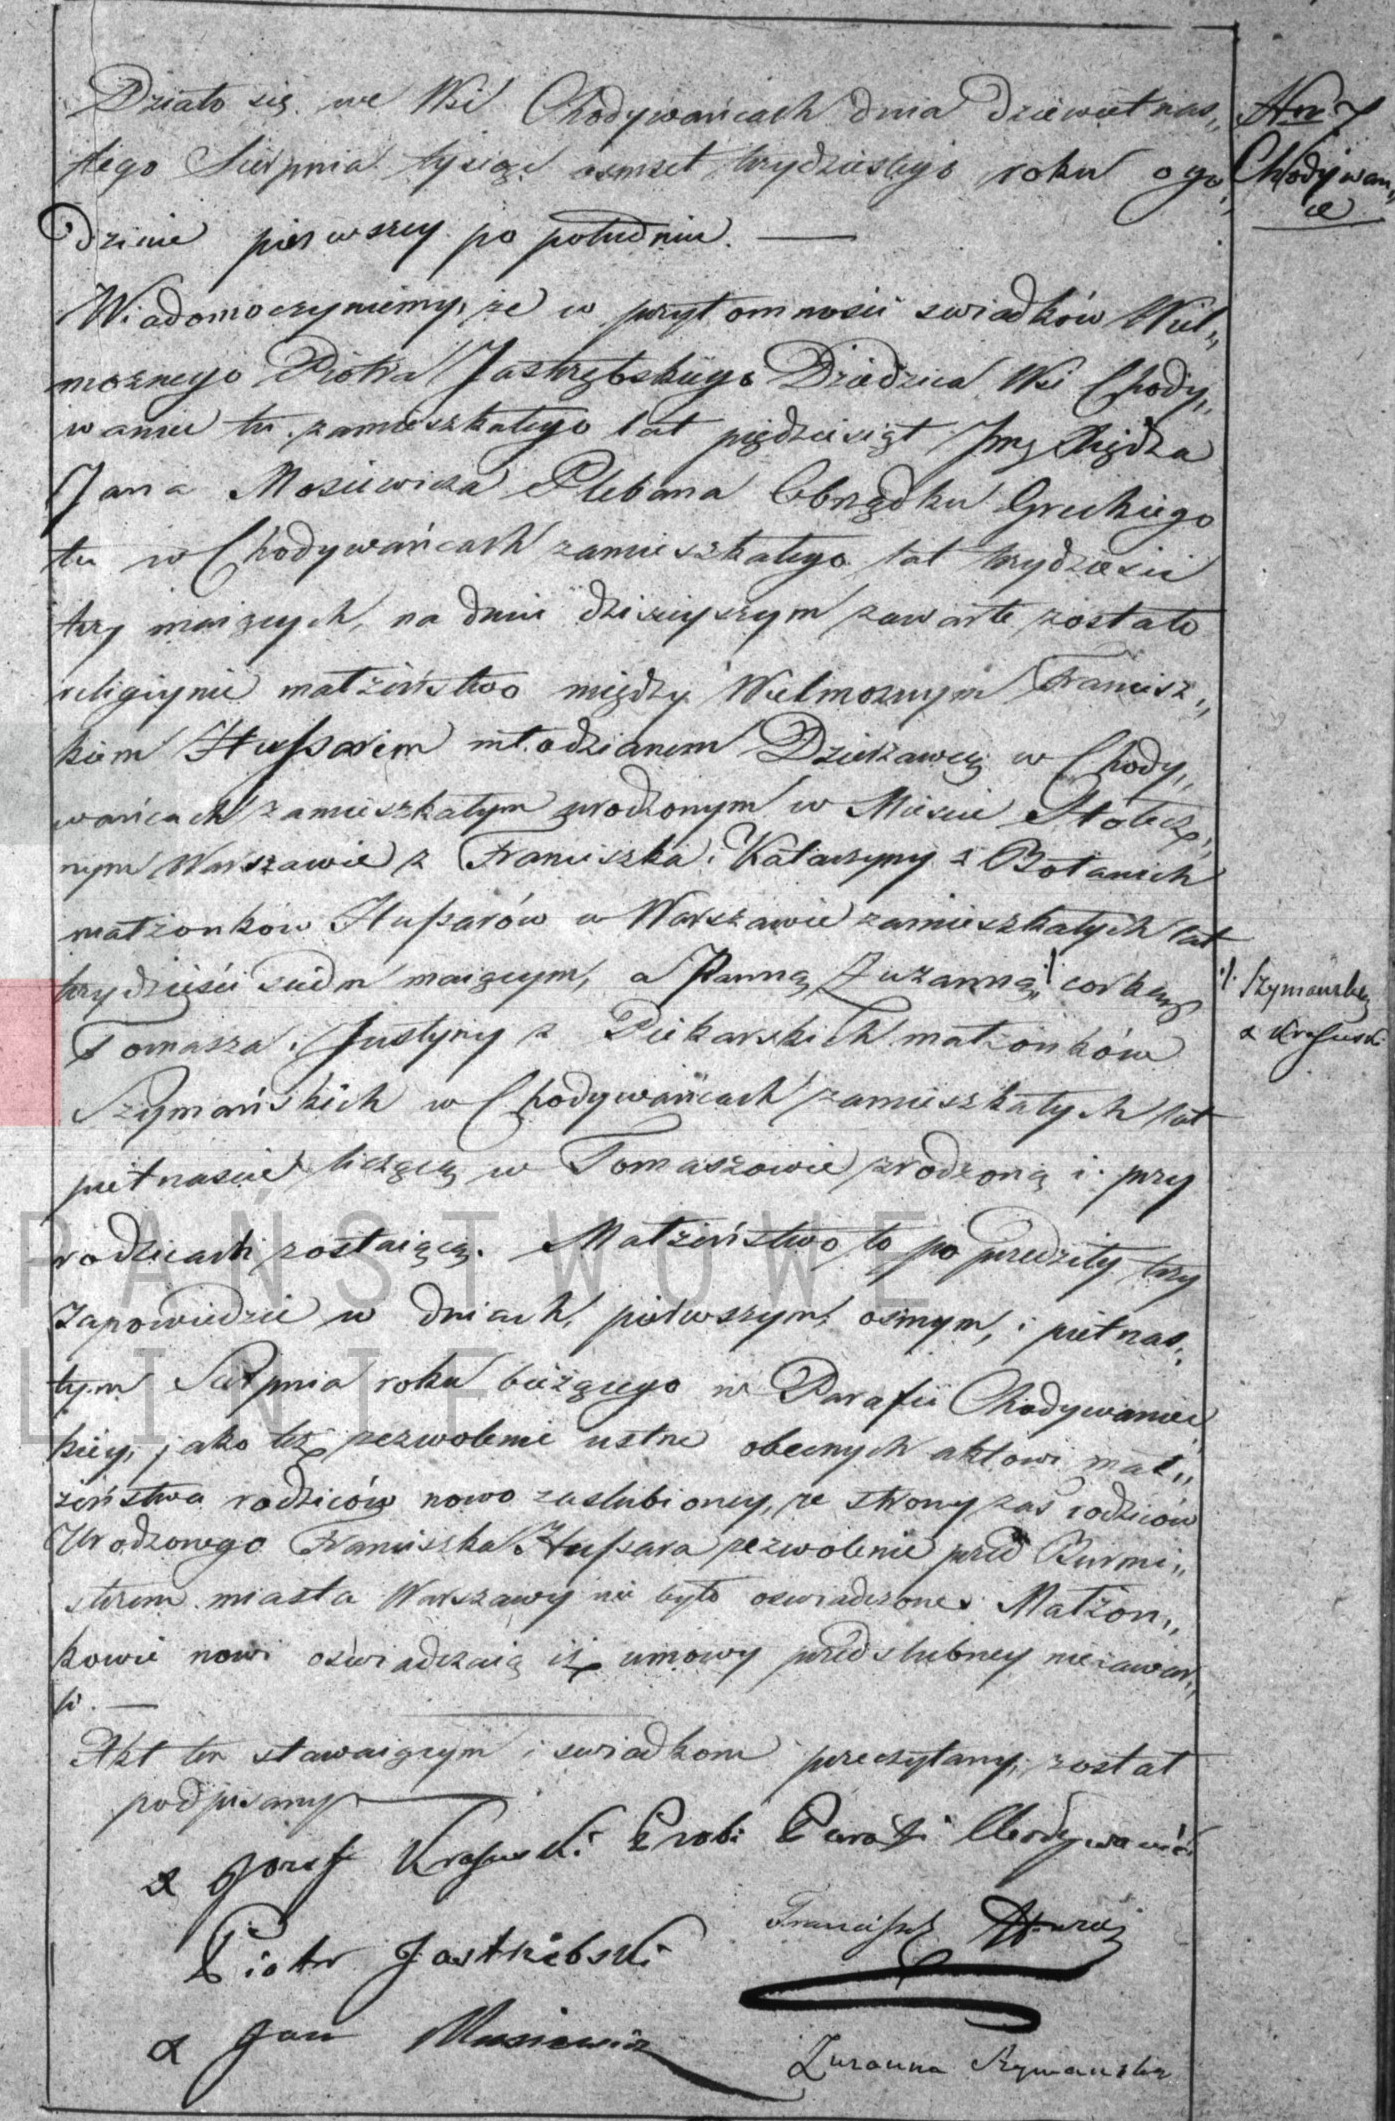 Działo się we Wsi Chodywańcach dnia dziewietnas„
tego Sierpnia tysiąc osmset trzydziestego roku o go„
dzinie pierwszey po południu. —
Nro 7
Chodywan„
ce
Wiadomo czyniemy, że w przytomności swiadków Wiel„
możnego Piotra Jastrzębskiego Dziedzica Wsi Chody„
waniec tu zamieszkałego lat pięćdziesiąt Jmx Xiędza
Jana Mosiewicza Plebana Obrządku Greckiego
tu w Chodywańcach zamieszkałego lat trzydzieści
trzy maiących, na dniu dzisieyszym zawarte zostało
religiynie małżeństwo między Wielmożnym Francisz„
kiem Hussarem młodzianem Dzierzawcą w Chody„
wańcach zamieszkałym urodzonym w Mieście Stołecz„
nym Warszawie z Franciszka i Katarzyny z
małżonków Hussarów w Warszawie zamieszkałych lat
trzydzieści siedm maiącym, a Panną Zuzanną ·/· corką
·/· Szymańską
x Krassuski
Tomasza i Justyny z Piekarskich małżonków
Szymańskich w Chodywańcach zamieszkałych lat
pietnascie liczącą w Tomaszowie zrodzoną i przy
rodzicach zostaiącą. Małżeństwo to poprzedziły trzy
zapowiedzie w dniach, pierwszym, osmym, i pietnas„
tym Sierpnia roku bieżącego w Parafii Chodywaniec
kiey, jako też zezwolenie ustne obecnych aktowi mał„
żeństwa rodziców nowo zaslubioney, ze strony zas rodziców
Urodzonego Franciszka Hussara zezwolenie przed Burmi„
strzem miasta Warszawy nie było oswiadczone. Małżon„
kowie nowi oświadczaią iż umowy przedslubney niezawar„
li. —
Akt ten stawaiącym i swiadkom przeczytany, został
podpisany
x Jozef Krassuski Prob: Parafi Chodywanieci
Piotr Jastrzębski
Franciszek
x Jan Mosiewicz
Zuzanna Szymańska
PAŃSTWOWE
LINIE